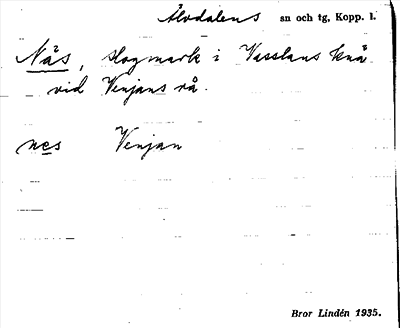 Älvdalens an och tg, Kopp. l.
Näs, skogmark i Vasslans knä
vid Venjans rå.
nes Venjan
Bror Lindén 1935.